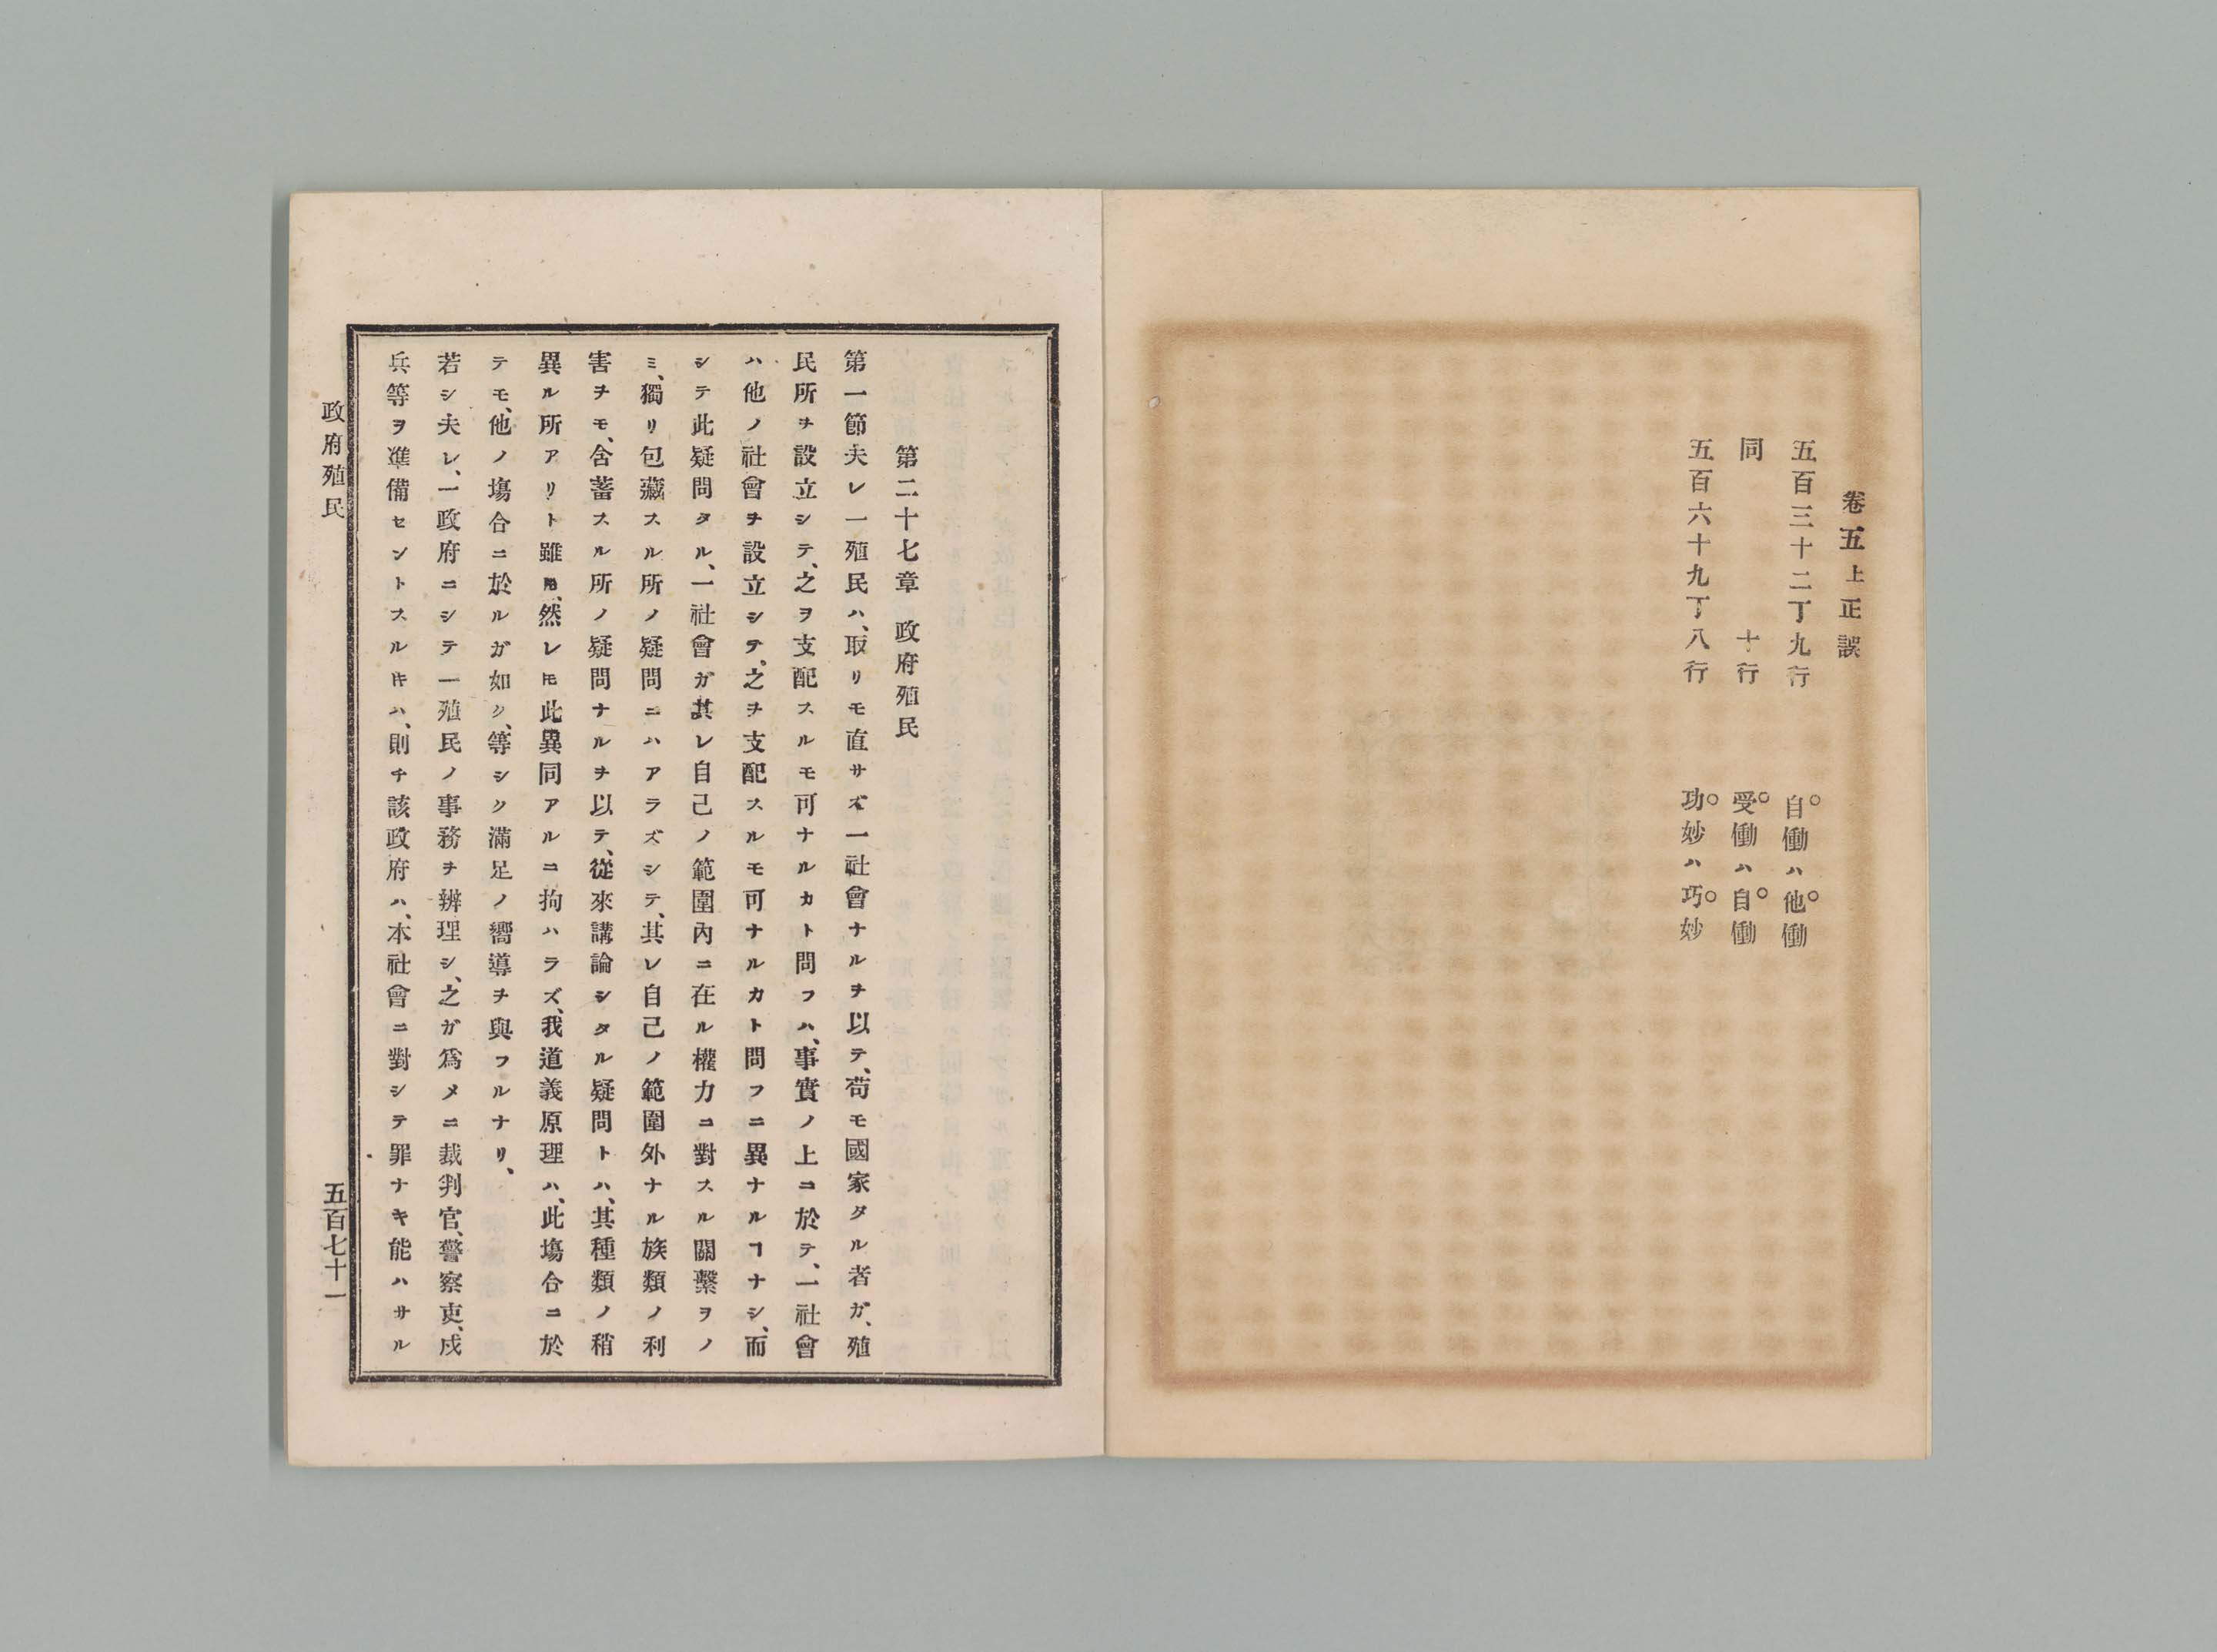 卷五上正誤
五百三十二丁九行　自働ハ他働
同　十行　受働ハ自働
五百六十九丁八行　功妙ハ巧妙
第二十七章　政府殖民
第一節夫レ一殖民ハ、取リモ直サズ一社會ナルヲ以テ、苟モ國家タル者ガ、殖
民所ヲ設立シテ、之ヲ支配スルモ可ナルカト問フハ、事實ノ上ニ於テ、一社會
ハ他ノ社會ヲ設立シテ、之ヲ支配スルモ可ナルカト問フニ異ナルヿナシ、而
シテ此疑問タル、一社會ガ其レ自己ノ範圍內ニ在ル權力ニ對スル關繫ヲノ
ミ、獨リ包藏スル所ノ疑問ニハアラズシテ、其レ自己ノ範圍外ナル族類ノ利
害ヲモ、含蓄スル所ノ疑問ナルヲ以テ、從來講論シタル疑問トハ、其種類ノ稍
異ル所アリト雖𪜈、然レ𪜈此異同アルニ拘ハラズ、我道義原理ハ、此塲合ニ於
テモ、他ノ塲合ニ於ルガ如ク、等シク滿足ノ嚮導ヲ與フルナリ、
若シ夫レ、一政府ニシテ一殖民ノ事務ヲ辨理シ、之ガ爲メニ裁判官、警察吏、戍
兵等ヲ準備セントスルキハ、則チ該政府ハ、本社會ニ對シテ罪ナキ能ハサル
政府殖民
五百七十一